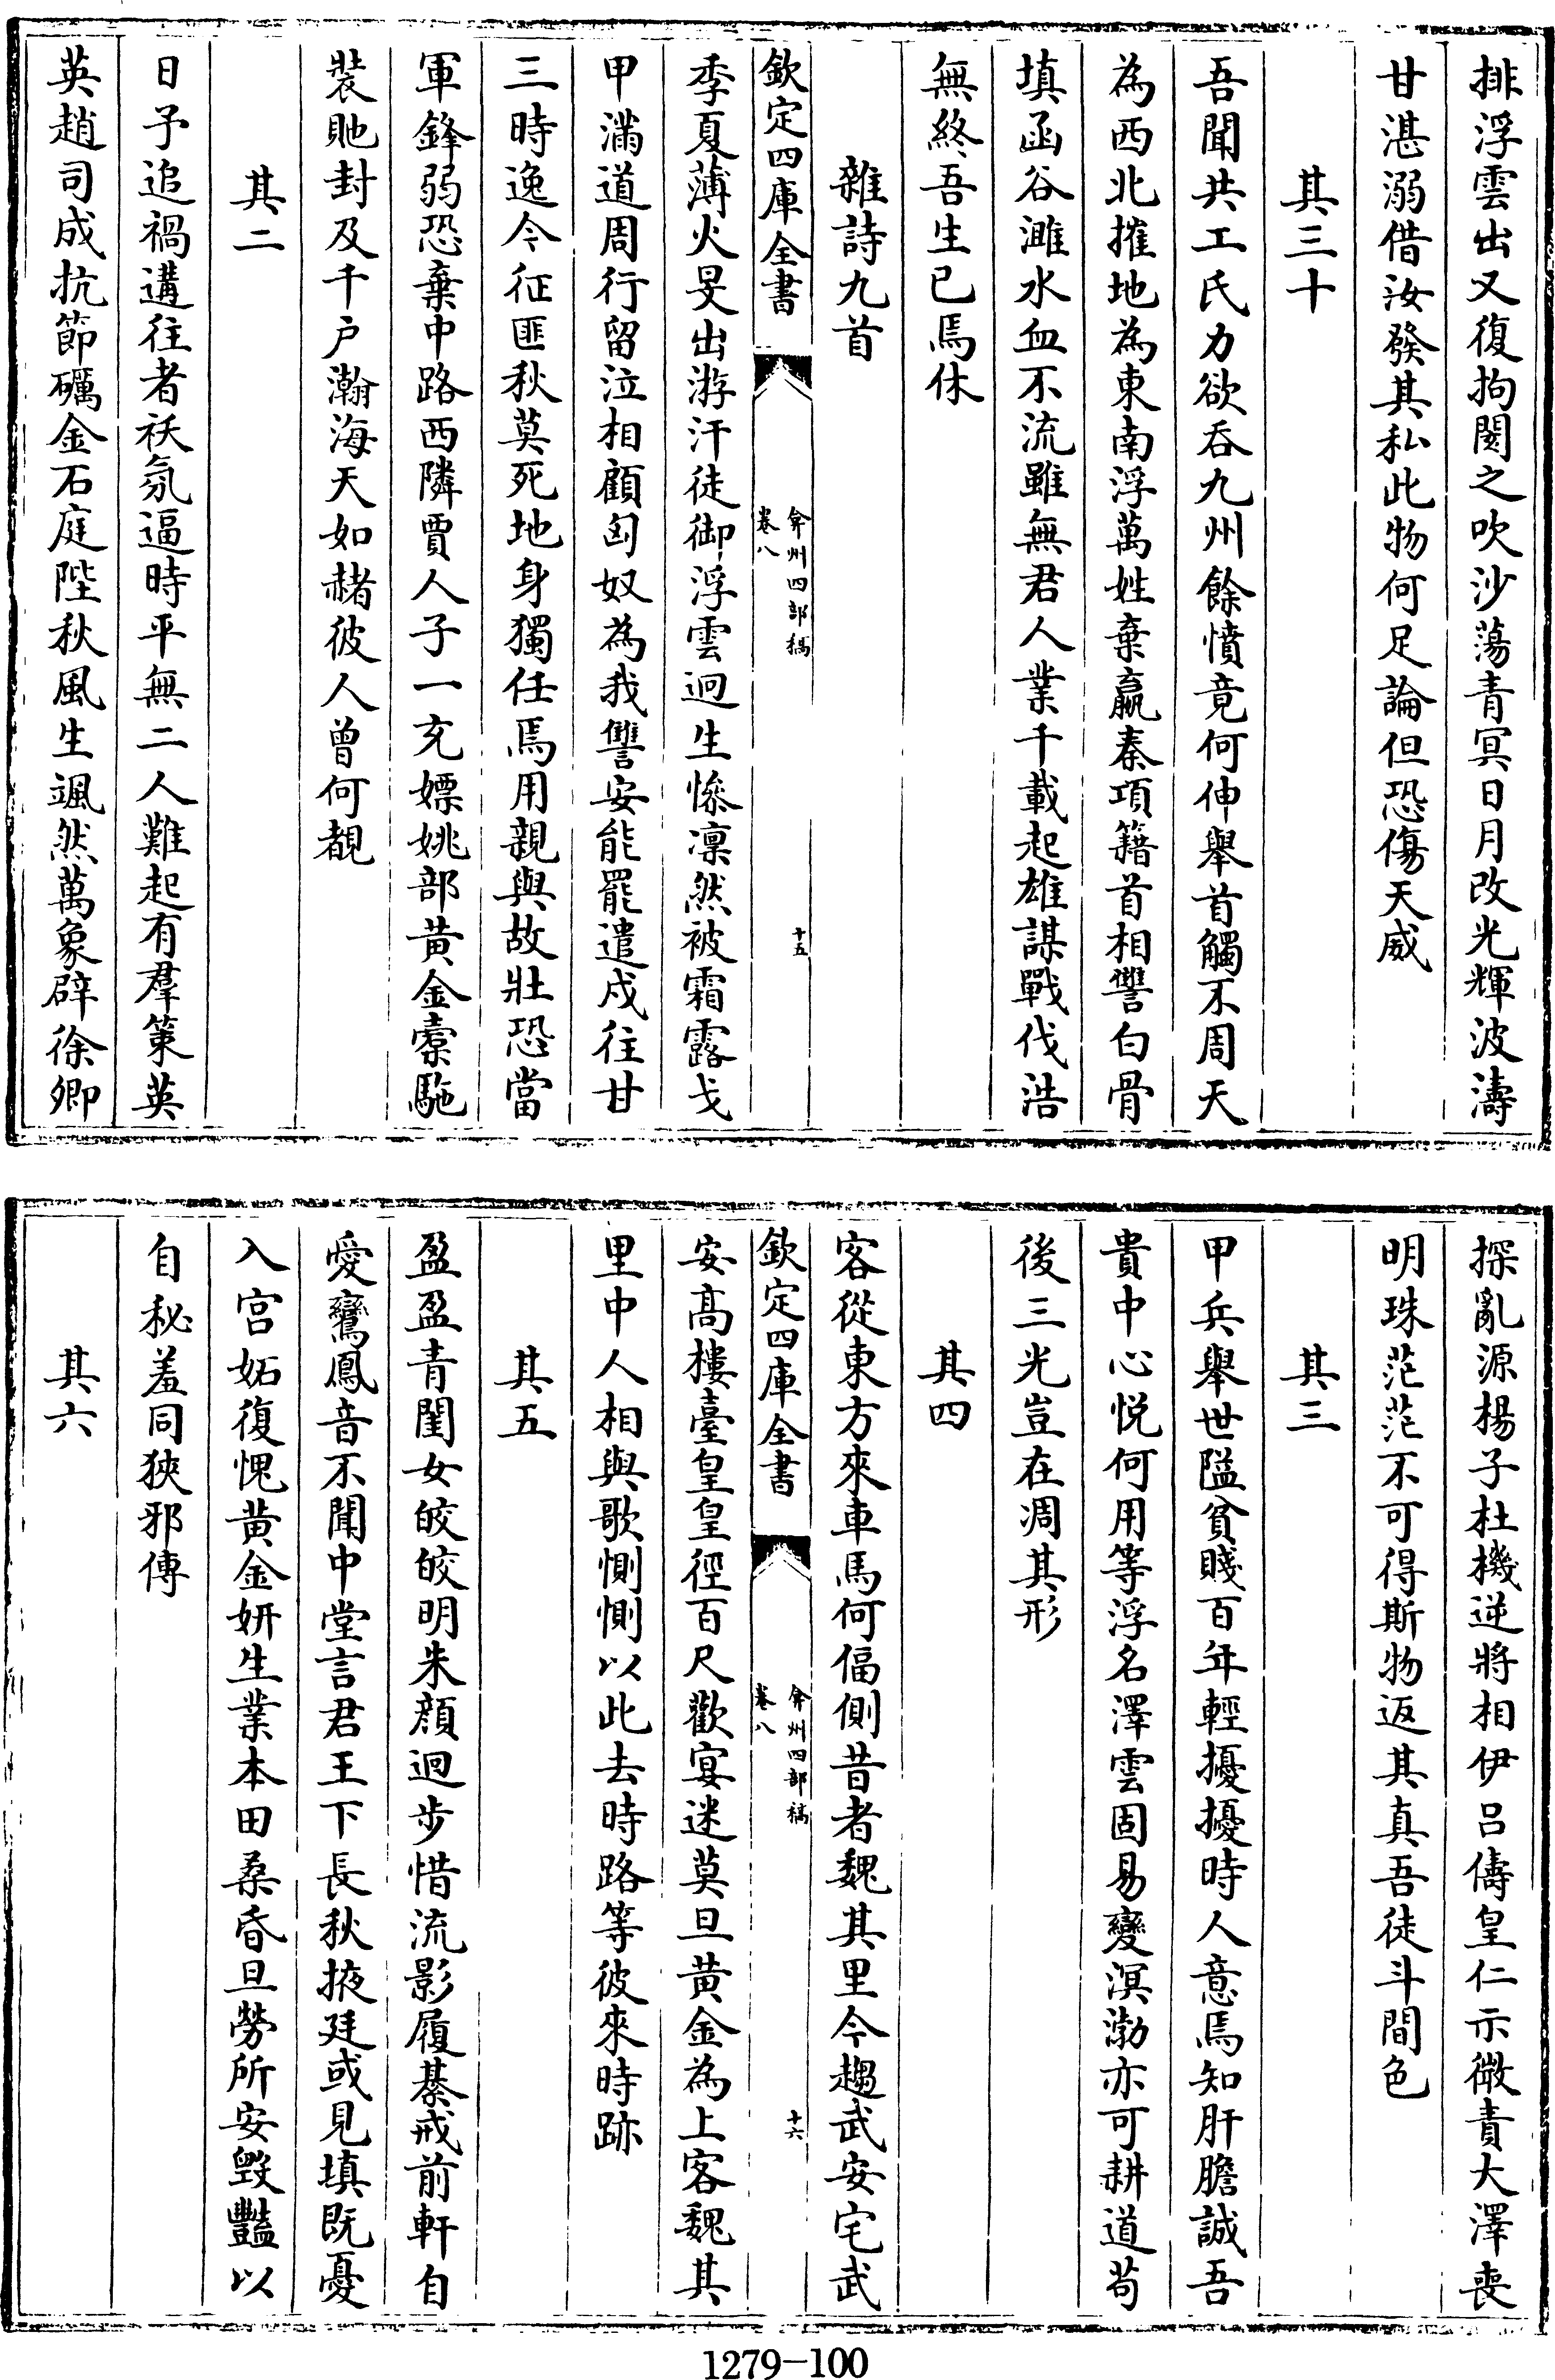 排浮雲出又復拘閡之吹沙蕩青冥日月改光輝波濤
甘湛溺借汝發其私此物何足論但恐傷天威
其三十
吾聞共工氏力欲吞九州餘憤竟何伸舉首觸不周天
為西北摧地為東南浮萬姓棄嬴秦項籍首相讐白骨
填函谷濉水血不流雖無君人業千載起雄謀戰伐浩
無終吾生已焉休
雜詩九首
欽定四庫全書
弇州四部稿
卷八
十五
季夏薄火旻出游汗徒御浮雲迥生慘凜然被霜露戈
甲滿道周行留泣相顧匈奴為我讐安能罷遣戍往甘
三時逸今征匪秋莫死地身獨任焉用親與故壯恐當
軍鋒弱恐棄中路西隣賈人子一充嫖姚部黃金橐馳
裝貤封及千户瀚海天如赭彼人曾何覩
其二
日予追禍遘往者祅氛逼時平無二人難起有羣策英
英趙司成抗節礪金石庭陛秋風生颯然萬象辟徐卿
探亂源楊子杜機逆將相伊呂儔皇仁示微責大澤喪
明珠茫茫不可得斯物返其真吾徒斗間色
其三
甲兵舉世隘貧賤百年輕擾擾時人意焉知肝膽誠吾
貴中心悅何用等浮名澤雲固易變溟渤亦可耕道茍
後三光豈在凋其形
其四
客從東方來車馬何偪側昔者魏其里今趨武安宅武
欽定四庫全書
弇州四部稿
卷八
十六
安高樓臺皇皇徑百尺歡宴迷莫旦黃金為上客魏其
里中人相與歌惻惻以此去時路等彼來時跡
其五
盈盈青閨女皎皎明朱顔迴步惜流影履綦戒前軒自
愛鸞鳳音不聞中堂言君王下長秋掖廷或見填既憂
入宮妬復愧黃金妍生業本田桑昏旦勞所安毀豔以
自秘羞同狹邪傳
其六
1279-100